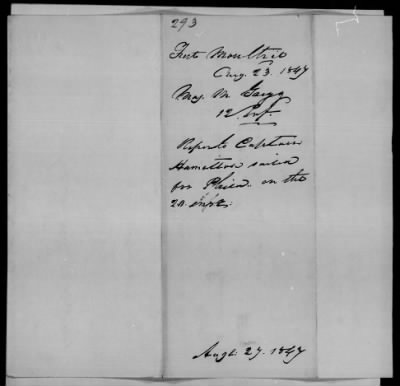 293
Fort Moultrie
Aug. 23. 1847
Maj. M.
12 Inf.
Reports Captain
Hamilton sailed
for Phila. on the
inst.
Augt. 27. 1847